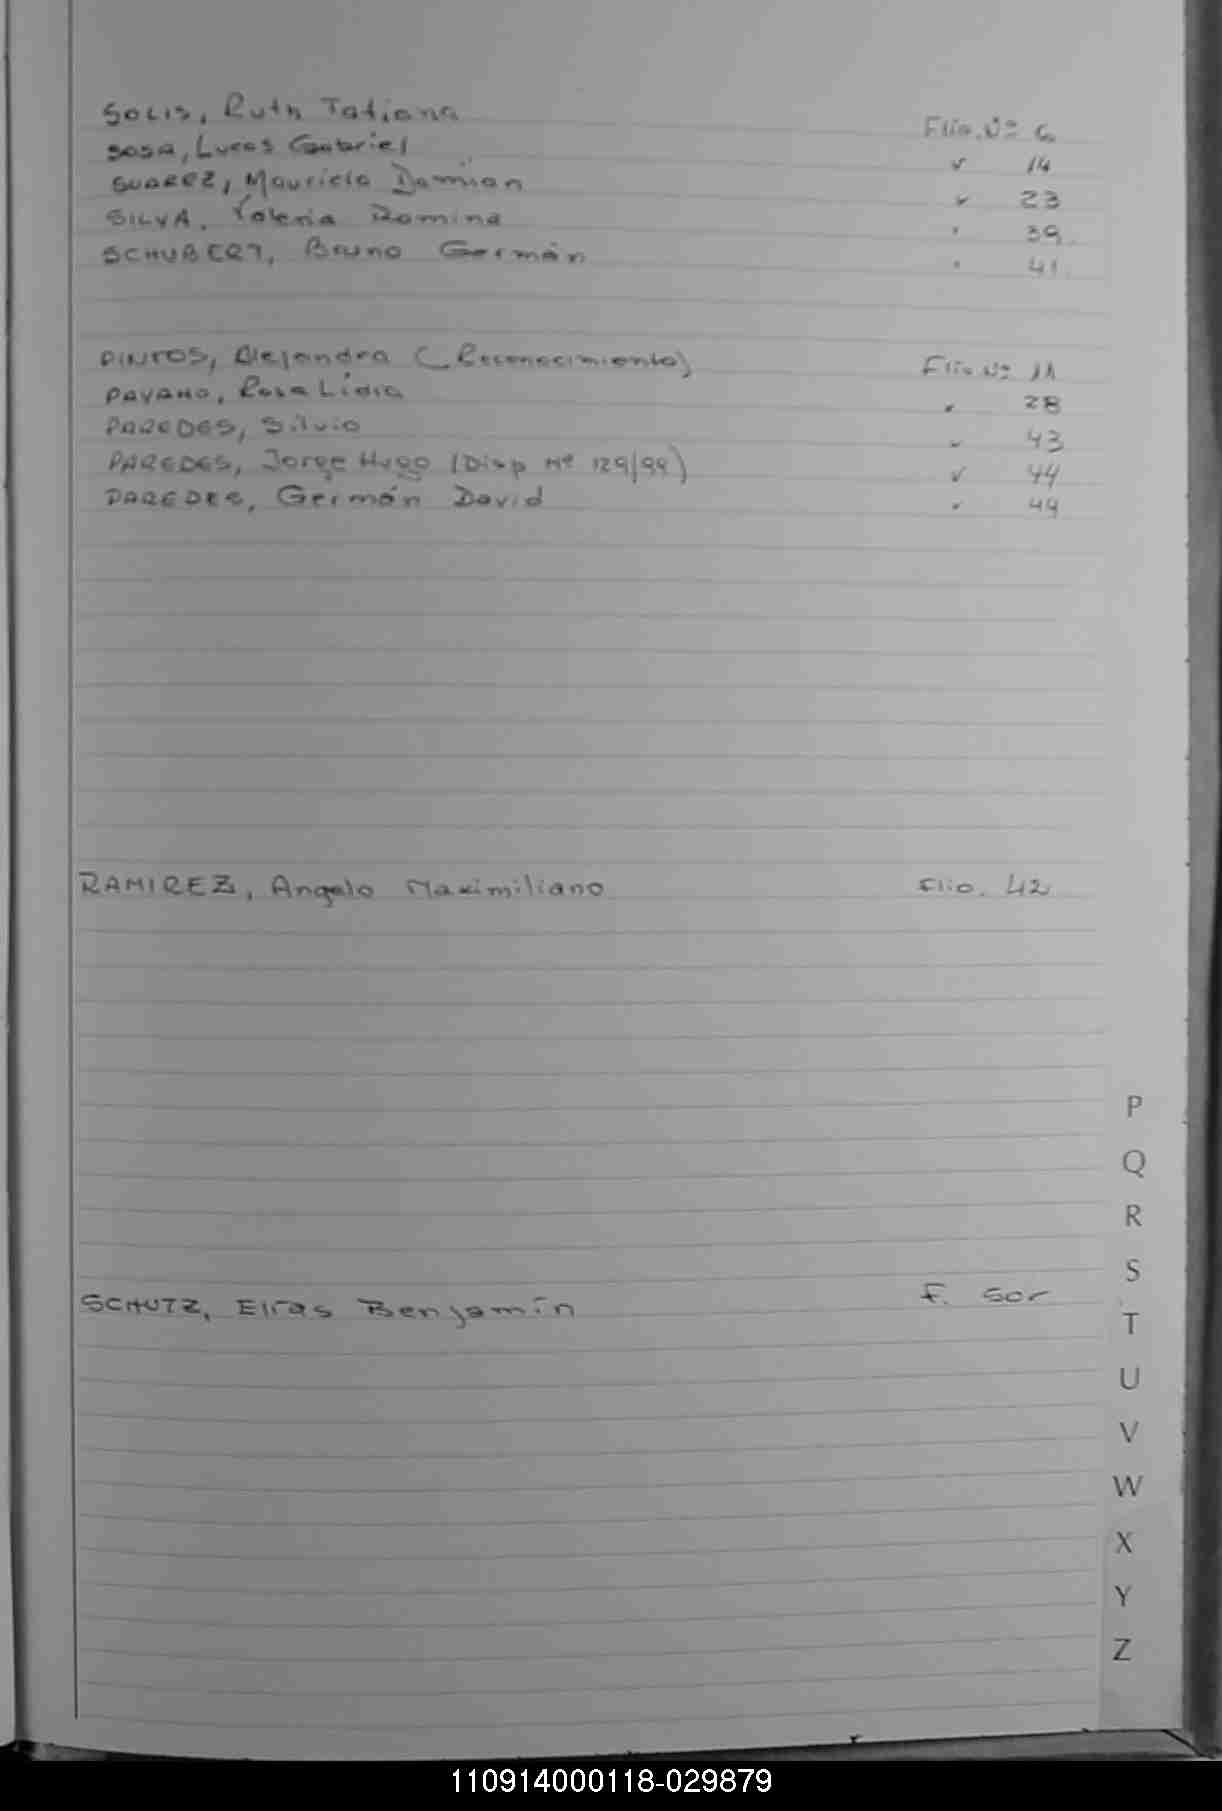 SOLIS, Ruth Tatiana Flio. Nº 6
SOSA, Lucas Gabriel " 14
SUAREZ, Mauricio Damian " 23
SILVA, Valeria Romina " 39
SCHUBERT, Bruno Germán " 41
PINTOS, Alejandra (Reconocimiento) Flio Nº 11
PAVANO, Rosa Lidia " 28
PAREDES, Silvio " 43
PAREDES, Jorge Hugo (Disp Nº 129/99) " 44
PAREDES, Germán David " 49
RAMIREZ, Angelo Maximiliano Flio. 42
SCHUTZ, Elías Benjamín F.
P
Q
R
S
T
U
V
W
X
Y
Z
110914000118-029879